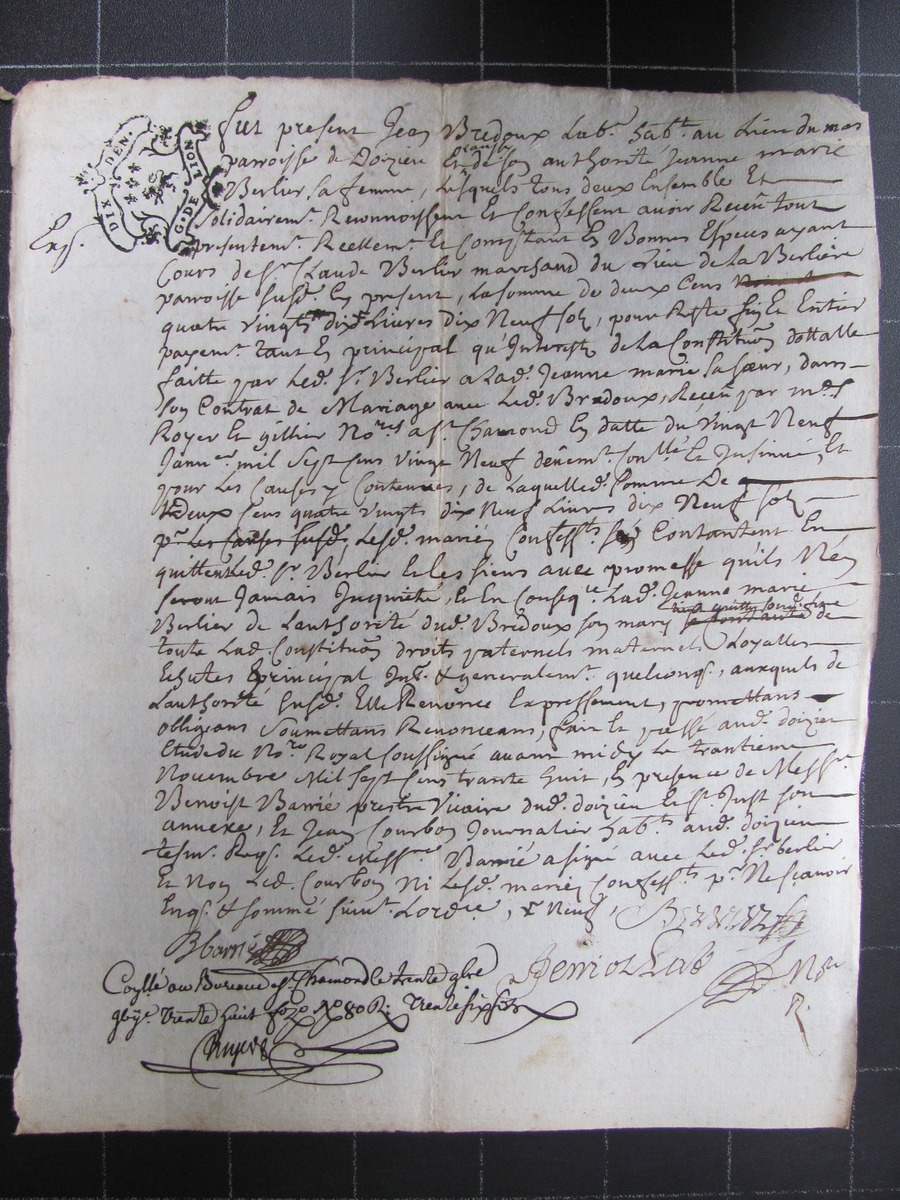 DIX DEN.
G. DE LION
Enq.
fut present Jean Bredoux Lab.r hab.t au Lieu du mas
parroisse de Doizieu Et de son authorité Jeanne marie
Berlier sa femme, Lesquels tous deux Ensemble Et
Solidairem.t Reconnoissent Et Confessent avoir Receu tout
presentem.t Reellem.t Et Comptant En Bonnes Especes ayant
Cours de S.r Claude Berlier marchand du Lieu de la Berlière
parroisse susd. Cy present, La somme de deux Cens
quatre vingts dix Livres dix Neuf sols, pour Reste fin Et Entier
payem.t tant En principal qu'Interests de La Constitu̅on dottalle
faitte par Led. S.r Berlier a Lad. Jeanne marie sa sœur, dans
son Contrat de Mariage avec Led. Bredoux, Receu par m.es
Royer Et gillier No.res a S.t Chamond En datte du vingt Neuf
Janv.er mil sept Cens vingt Neuf deuem.t Et Insinué, Et
pour Les Causes y Contenues, de Laquelle d. somme De
Deux Cens quatre vingts dix Neuf Livres dix Neuf sols
p.r Les Causes susd. Lesd. mariés Confess.ts Contantent En
quittent Led. S.r Berlier Et Les siens avec promesse qu'ils N'en
seront Jamais Inquiété, Et En Conseq.ce Lad. Jeanne marie
Berlier de L'authorité dud. Bredoux son mary de
toute Lad. Constitu̅on droits paternels maternels Loyalles
Echutes principal Int. & generalem.t quelconq., auxquels de
L'authorité susd. Elle Renonce Expressement, promettans
obligeans soumettans Renonceans, fait Et passé aud. doizieu
Etude du No.re Royal soussigné avant midy Le trantieme
Novembre Mil sept Cens trante huit, En presence de Mess.re
Benoist Barrié prestre Vicaire dud. doizieu Et S.t Just son
annexe, Et Jean Courbon Journalier hab.ts aud. doizieu
tesm. Req. Led. Mess.re Barrié a signé avec Led. S.r berlier
Et Non Led. Courbon Ni Lesd. mariés Confess.ts p.r Ne sçavoir
Enq. & sommé suiv.t Lord.ce,
B barrié
No.re
R.
Coṅllé au Bureau de S.t Chamond le trente 9bre
trente huit trente six sols